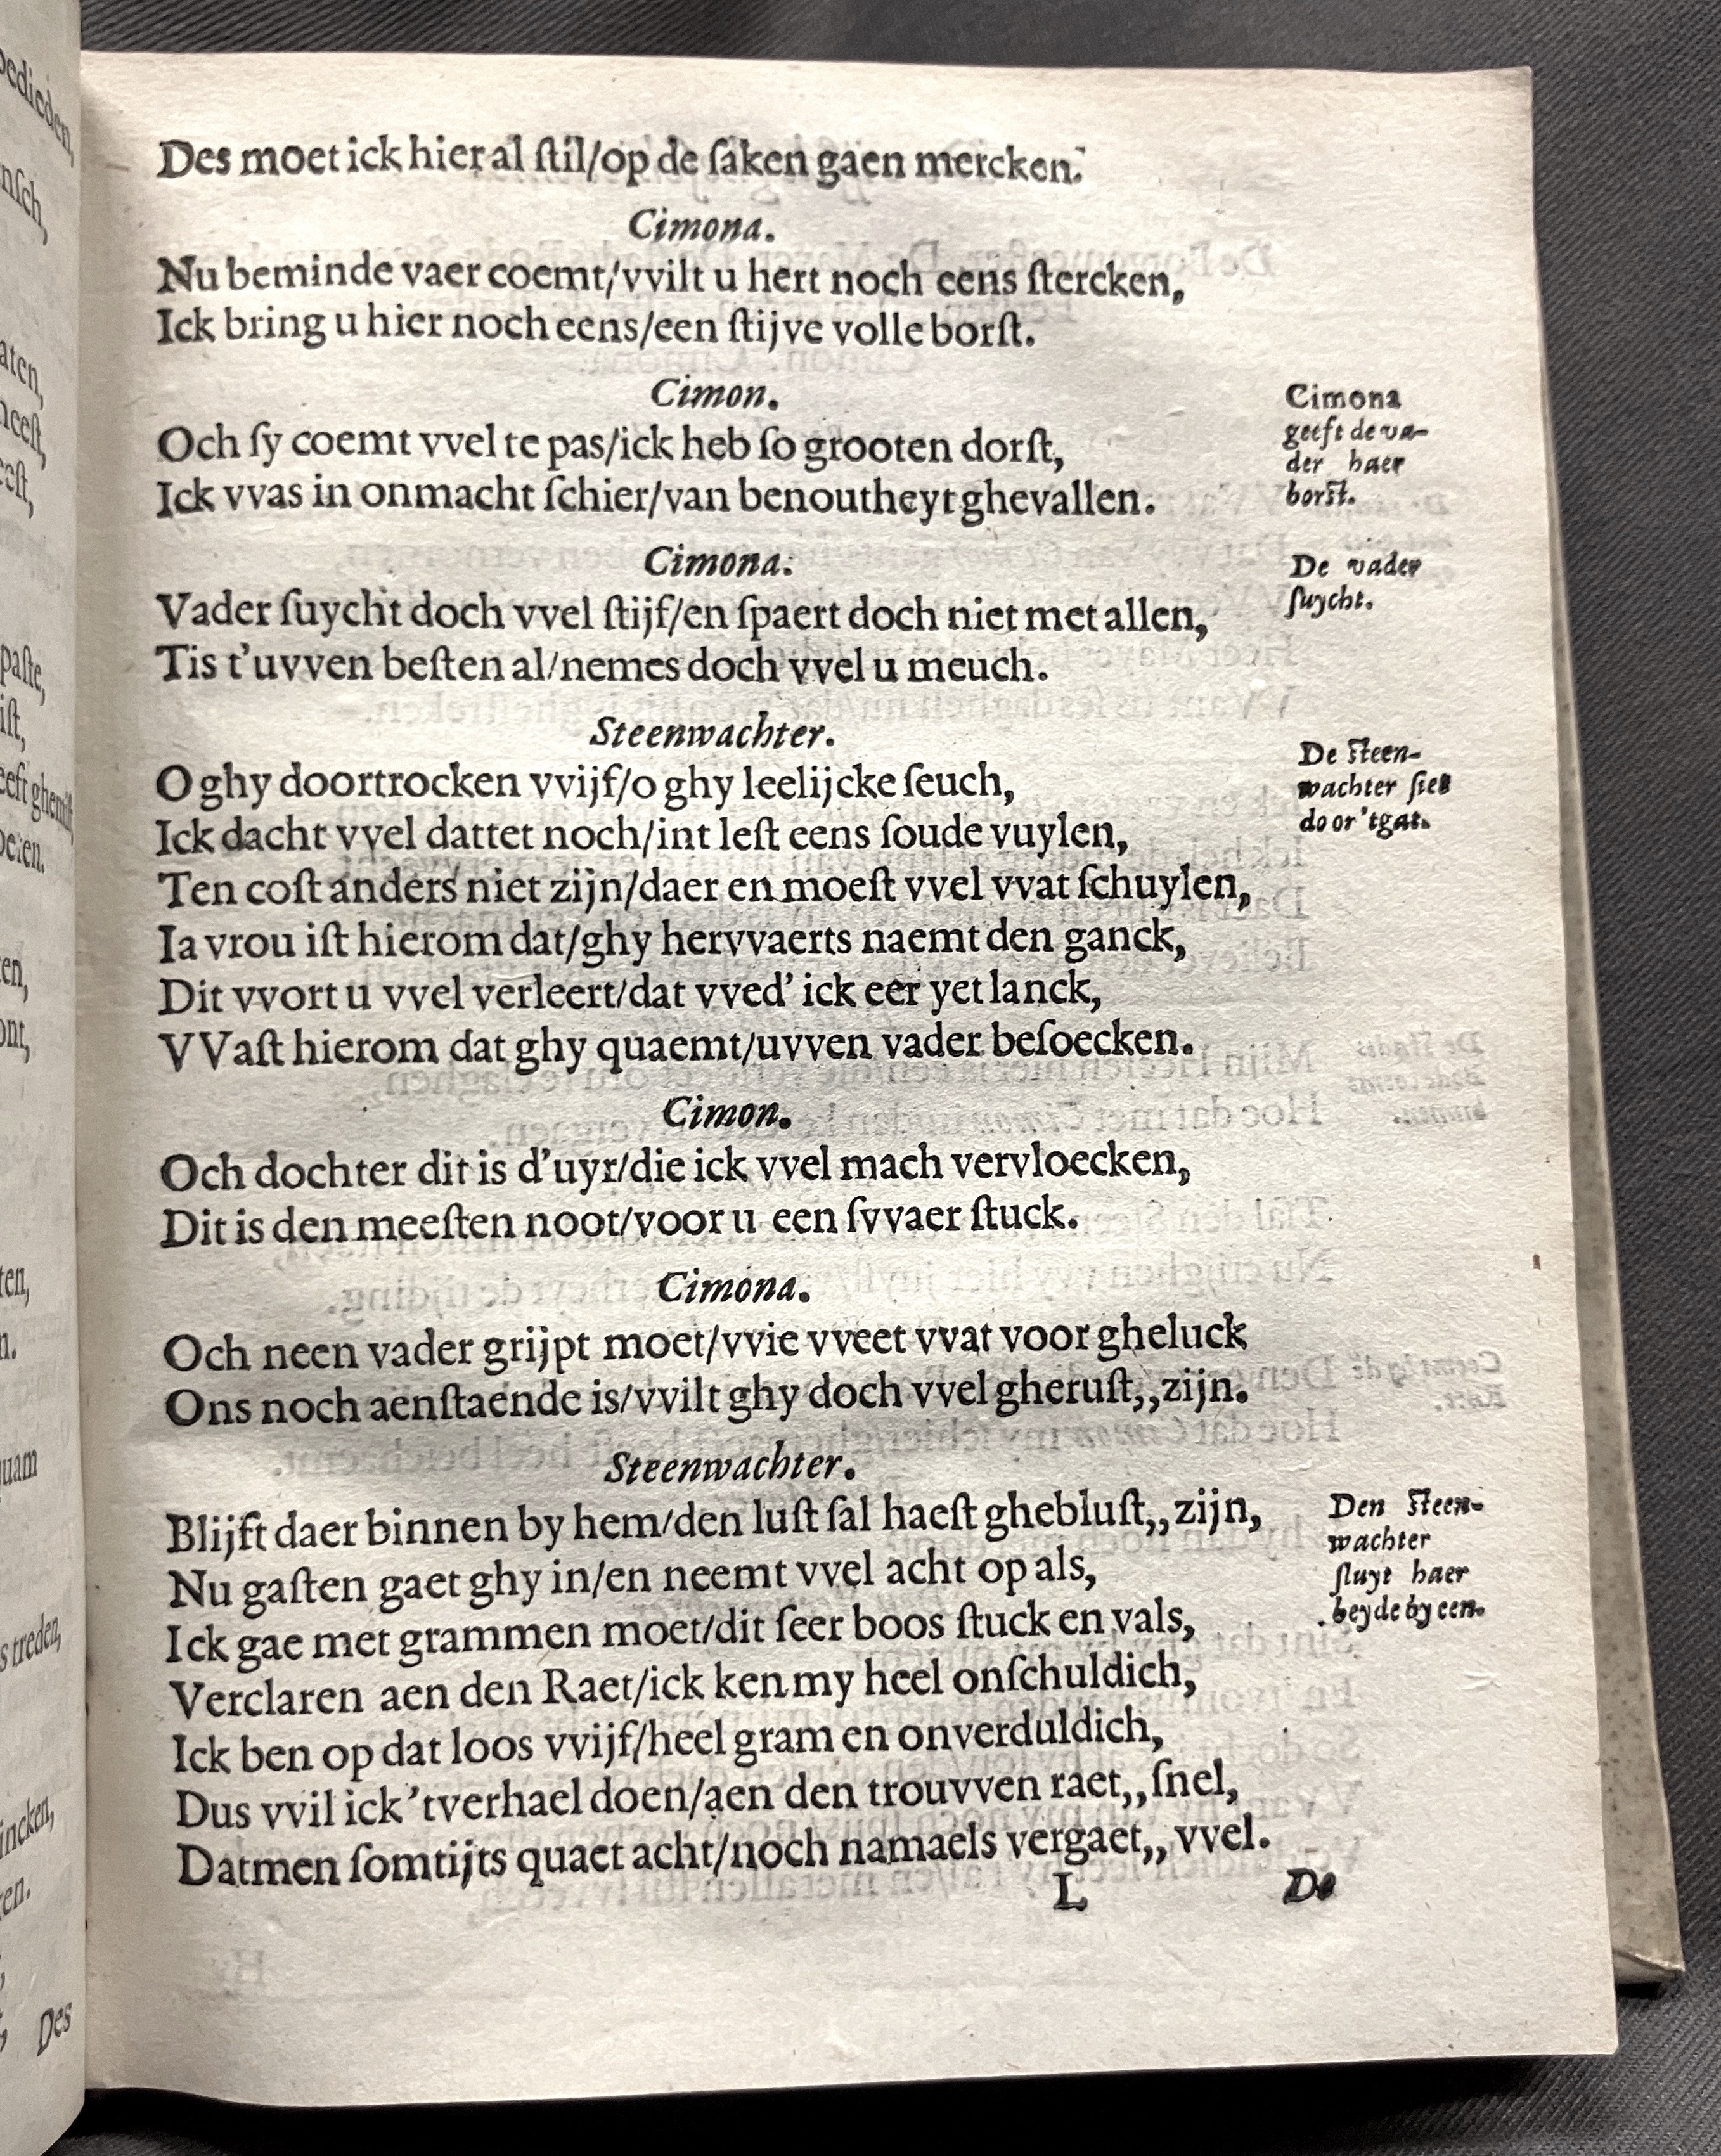 Des moet ick hier al ſtil/op de ſaken gaen mercken.
Cimona.
Nu beminde vaer coemt/vvilt u hert noch eens ſtercken,
Ick bring u hier noch eens/een ſtijve volle borſt.
Cimon.
Och ſy coemt vvel te pas/ick heb ſo grooten dorſt,
Ick vvas in onmacht ſchier/van benoutheyt ghevallen.
Cimona
geeft de va-
der haer
borſt.
Cimona.
Vader ſuycht doch vvel ſtijf/en ſpaert doch niet met allen,
Tis t'uvven beſten al/nemes doch vvel u meuch.
De vader
ſuycht.
Steenwachter.
O ghy doortrocken vvijf/o ghy leelijcke ſeuch,
Ick dacht vvel dattet noch/int leſt eens ſoude vuylen,
Ten coſt anders niet zijn/daer en moeſt vvel vvat ſchuylen,
Ia vrou iſt hierom dat/ghy hervvaerts naemt den ganck,
Dit vvort u vvel verleert/dat vved' ick eer yet lanck,
VVaſt hierom dat ghy quaemt/uvven vader beſoecken.
De ſteen-
wachter ſiet
door 'tgat.
Cimon.
Och dochter dit is d'uyr/die ick vvel mach vervloecken,
Dit is den meeſten noot/voor u een ſvvaer ſtuck.
Cimona.
Och neen vader grijpt moet/vvie vveet vvat voor gheluck
Ons noch aenſtaende is/vvilt ghy doch vvel gheruſt,,zijn.
Steenwachter.
Blijft daer binnen by hem/den luſt ſal haeſt ghebluſt,,zijn,
Nu gaſten gaet ghy in/en neemt vvel acht op als,
Ick gae met grammen moet/dit ſeer boos ſtuck en vals,
Verclaren aen den Raet/ick ken my heel onſchuldich,
Ick ben op dat loos vvijf/heel gram en onverduldich,
Dus vvil ick 'tverhael doen/aen den trouvven raet,,ſnel,
Datmen ſomtijts quaet acht/noch namaels vergaet,,vvel.
Den ſteen-
wachter
ſluyt haer
beyde by een.
L De
Des